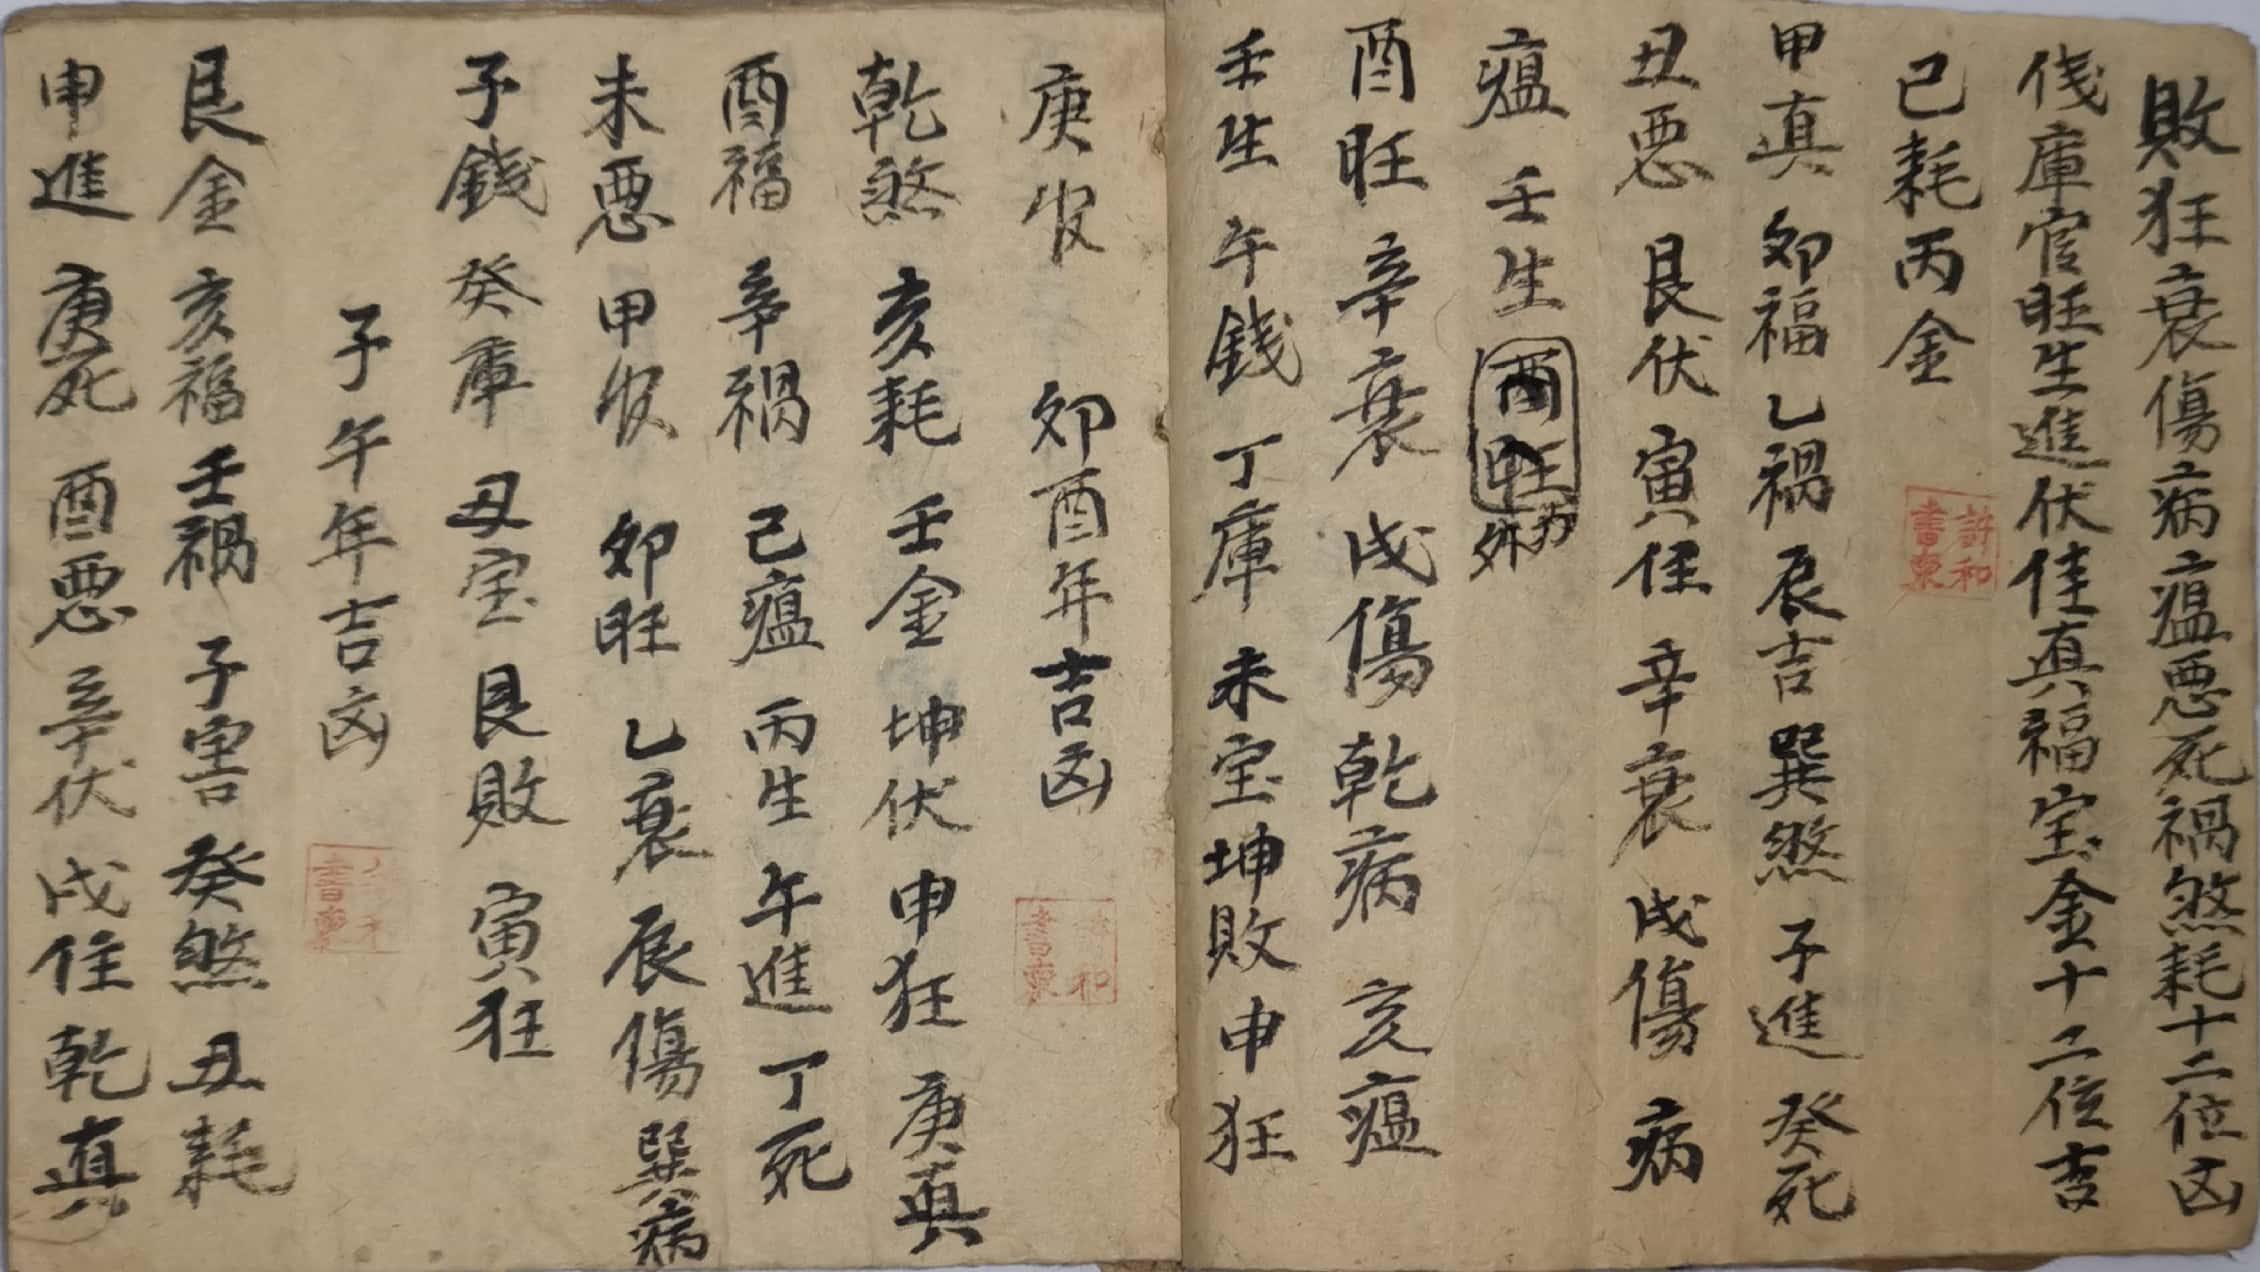 敗狂衰傷病瘟悪死禍煞耗十二位凶
伐庫官旺生進伏佳真福宝金十二位吉
已耗丙金
許和
書東
甲真 夘福 乙禍 辰吉 巽煞 子進 癸死
丑悪 艮伏 寅住 辛衰 戌傷 病
瘟 壬生 酉旺
酉旺 辛衰 戌傷 乾病 亥瘟
壬生 午錢 丁庫 未宝 坤敗 申狂
庚官 夘酉年吉凶
乾煞 亥耗 壬金 坤伏 申狂 庚真
酉福 辛禍 己瘟 丙生 午進 丁死
未悪 甲官 夘旺 乙衰 辰傷 巽病
子錢 癸庫 丑宝 艮敗 寅狂
子午年吉凶
艮金 亥福 壬禍 子害 癸煞 丑耗
申進 庚死 酉悪 辛伏 戌住 乾真